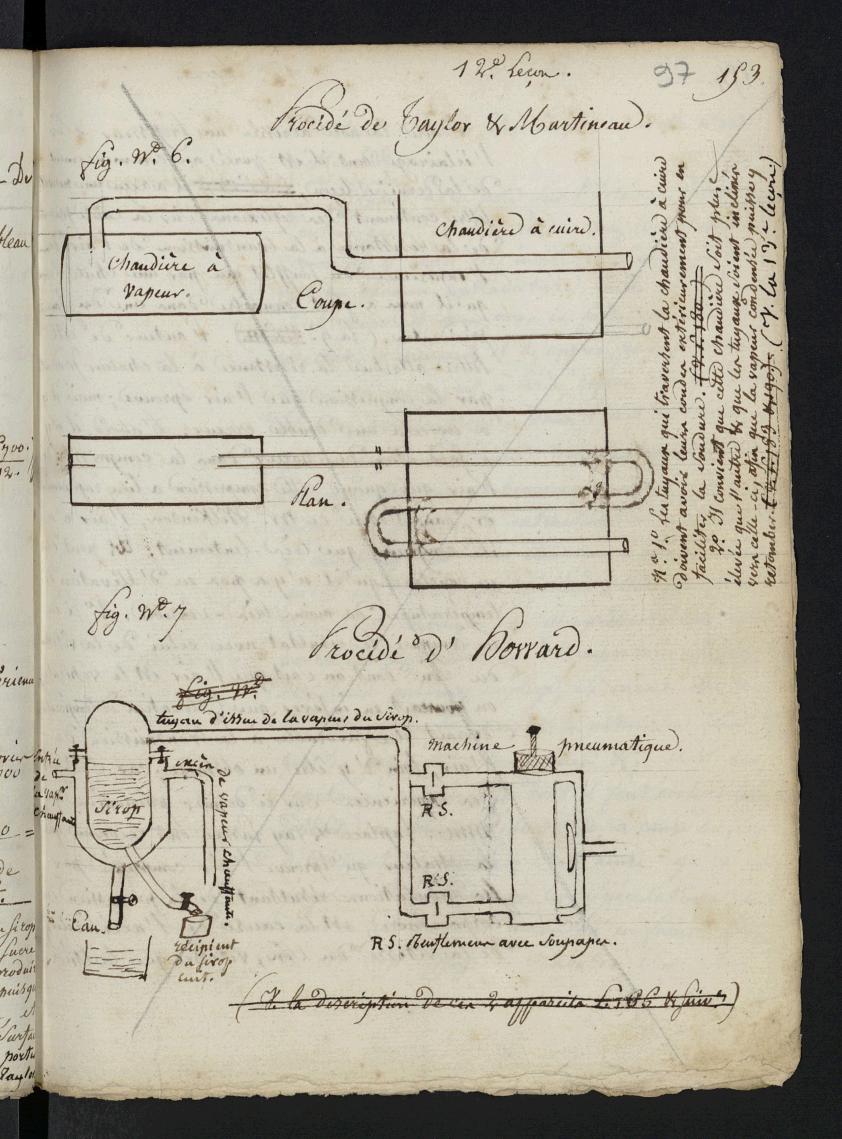 12e Leçon.
97
153.
Procédé de Taylor & Martineau.
fig. No. 6.
Chaudière à
Vapeur.
Chaudière à cuire.
Coupe.
Plan.
Na 1o. Les tuyaux qui traversent la chaudière à cuire
doivent avoir leurs coudes extérieurement pour en
faciliter la soudure.
2o. Il convient que cette chaudière soit plus
élevée que l'autre & que les tuyaux soient inclinés
vers celle-ci, afin que la vapeur condensée puisse y
retomber. (V. la 13e leçon)
fig. No. 7
Procédé d'Howard.
fig. No
tuyau d'issue de la vapeur du Sirop.
machine pneumatique.
Entrée
de
la vapr
chauffante
Sirop
de vapeur chauffante.
R S.
R S.
Eau.
récipient
du Sirop
cuit.
R S. Renflemens avec Soupapes.
(V. la description de ces 2 appareils & suivs)
de
Sirop
Sucre
produit
puisqu
et
portu
Taylor